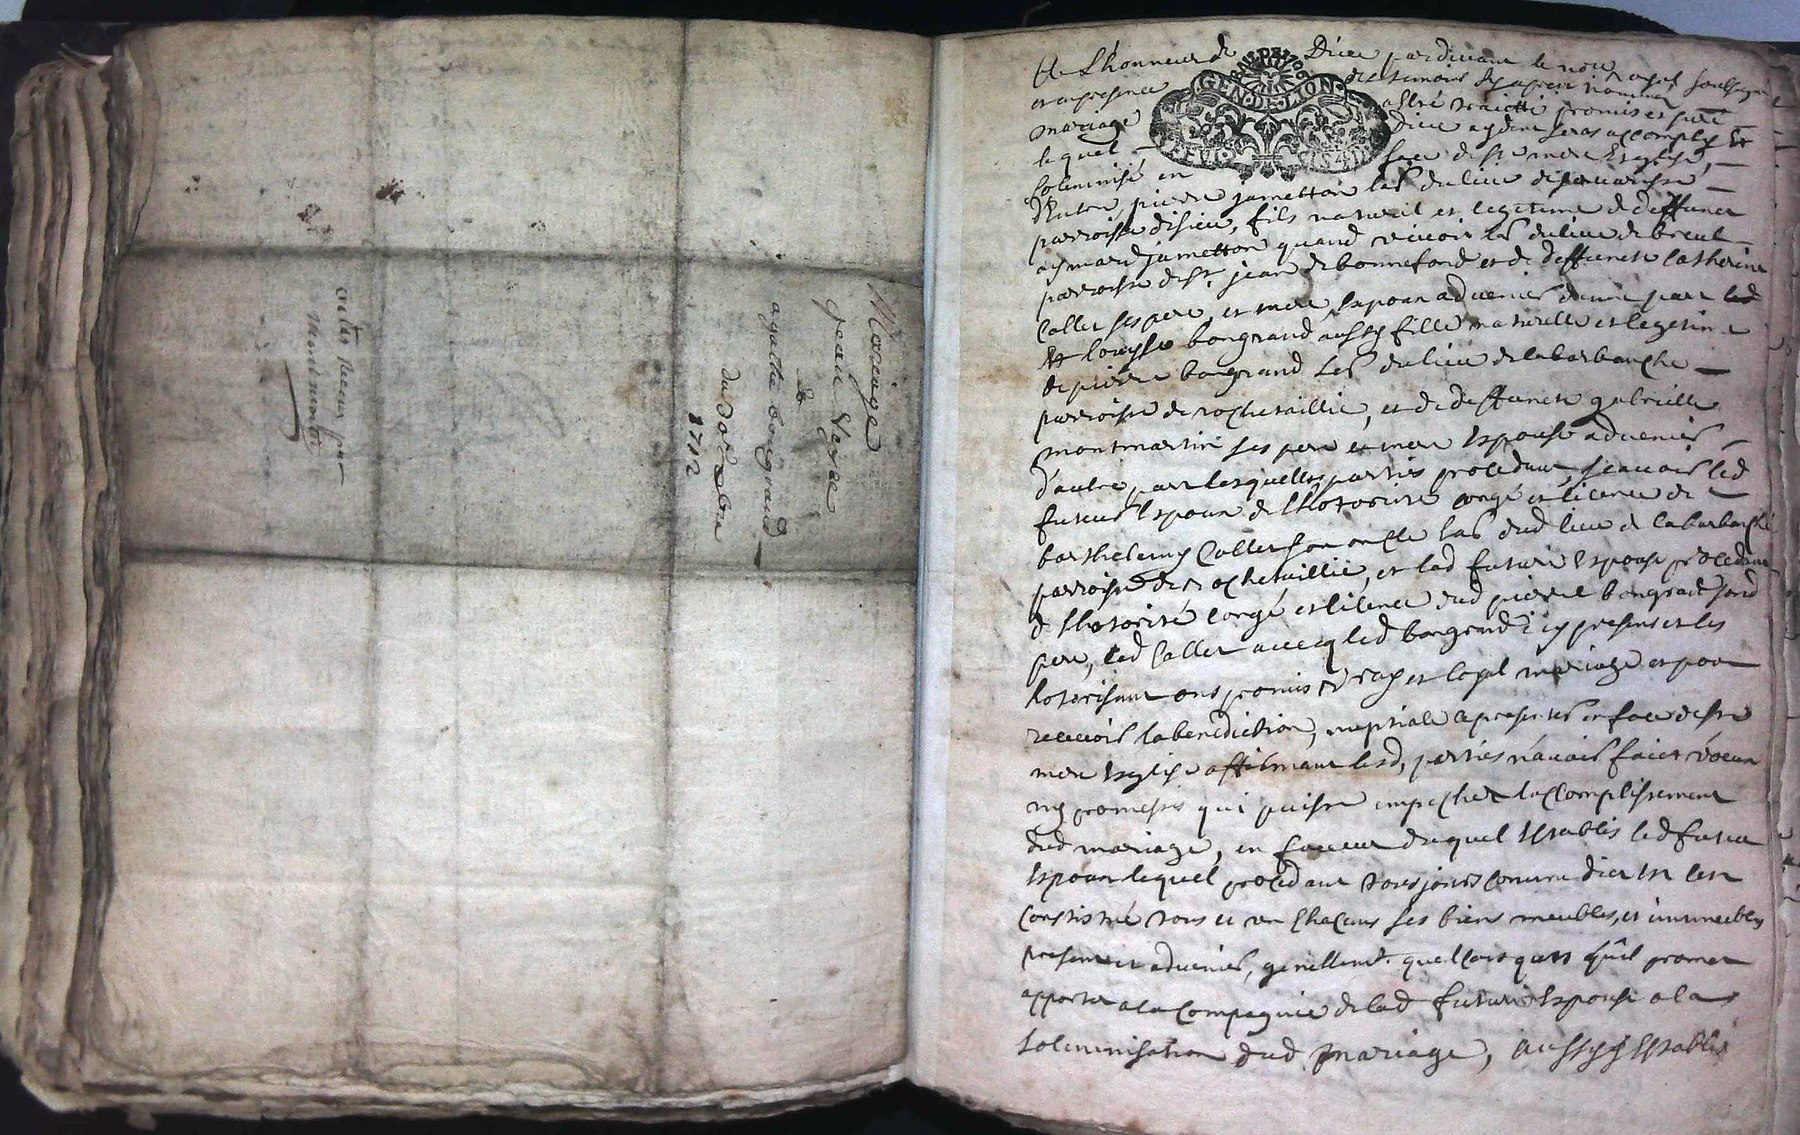 Mariage
Jean
&
agathe bongrand
1712
actes receus par
A L'honneur de Dieu pardevant le no.re royal soubsigné
et en presence des temoins sy apres nommes
mariage a esté traicté promis et
lequel Dieu aydant seras accomply et
GEN·DE·LION
solemnisé en face de s.te mere Esglise,
D'Entre pierre jametton lab.r du lieu de
parroisse disieu, fils naturel et legitime de deffunct
aymard jametton quand vivoit lab.r du lieu de breul
parroisse de S.t jean de bonnefond et de deffuncte Catherine
Collet ses pere et mere, Espoux advenir d'une part
Et Louyse bongrand aussy fille naturelle et legitime
de pierre bongrand Lab.r du lieu de la barbanche
parroisse de rochetaillie, et de deffuncte gabrielle
montmartin ses pere et mere Espouse advenir
d'autre part lesquelles parties procedant, scavoir led
futeur Espoux de l'hotorité congé et licence de
barthelemy Collet son oncle lab.r dud lieu de la barbanche
parroisse de rochetaillie, et lad future Espouse procedant
de l'hotorité congé et licence dud pierre bongrand sond
pere, led Collet avecq led bongrand icy presens et les
hotorisant ont promis vray et loyal mariage et pour
recevoir la benediction nuptiale se presenter en face de s.te
mere Esglise affirmant lesd, parties n'avoir faict voeux
ny promesses qui puisse empecher laccomplissement
dud mariage, en faveur duquel Establis led futeur
Espoux lequel procedant tousjours comme dict est sest
constitué tous et un chacuns ses biens meubles, et immeubles
presens et advenir, quelconques qu'il promet
apporter a la compagnie de lad future Espouse a la
solemnisation dud mariage, aussy Establis